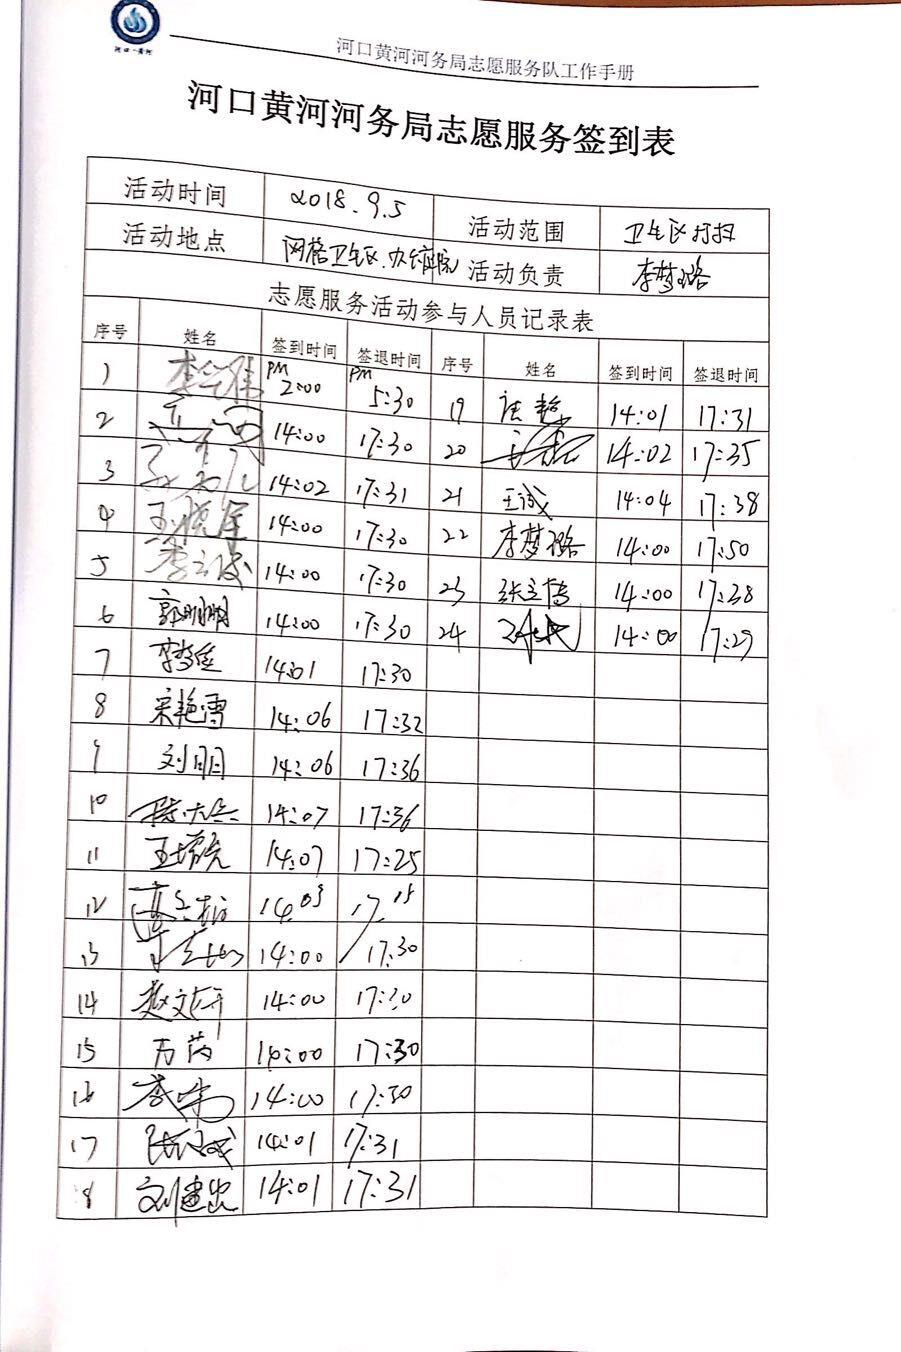 河口黄河河务局志愿服务队工作手册
河口黄河河务局志愿服务签到表
活动时间 2018.9.5 活动范围 卫生区打扫
活动地点 网格卫生区、办公庭院 活动负责 李梦璐
志愿服务活动参与人员记录表
序号 姓名 签到时间 签退时间 序号 姓名 签到时间 签退时间
1 PM 2:00 PM 5:30 19 14:01 17:31
2 14:00 17:30 20 14:02 17:35
3 14:02 17:31 21 王诚 14:04 17:38
4 14:00 17:30 22 李梦璐 14:00 17:50
5 14:00 17:30 23 14:00 17:38
6 郭明明 14:00 17:30 24 14:00 17:29
7 14:01 17:30
8 宋艳雪 14:06 17:32
9 刘明 14:06 17:36
10 14:07 17:36
11 14:07 17:25
12 14:03 17:15
13 14:00 17:30
14 赵文轩 14:00 17:30
15 万芮 14:00 17:30
16 14:00 17:30
17 14:01 17:31
18 刘建忠 14:01 17:31